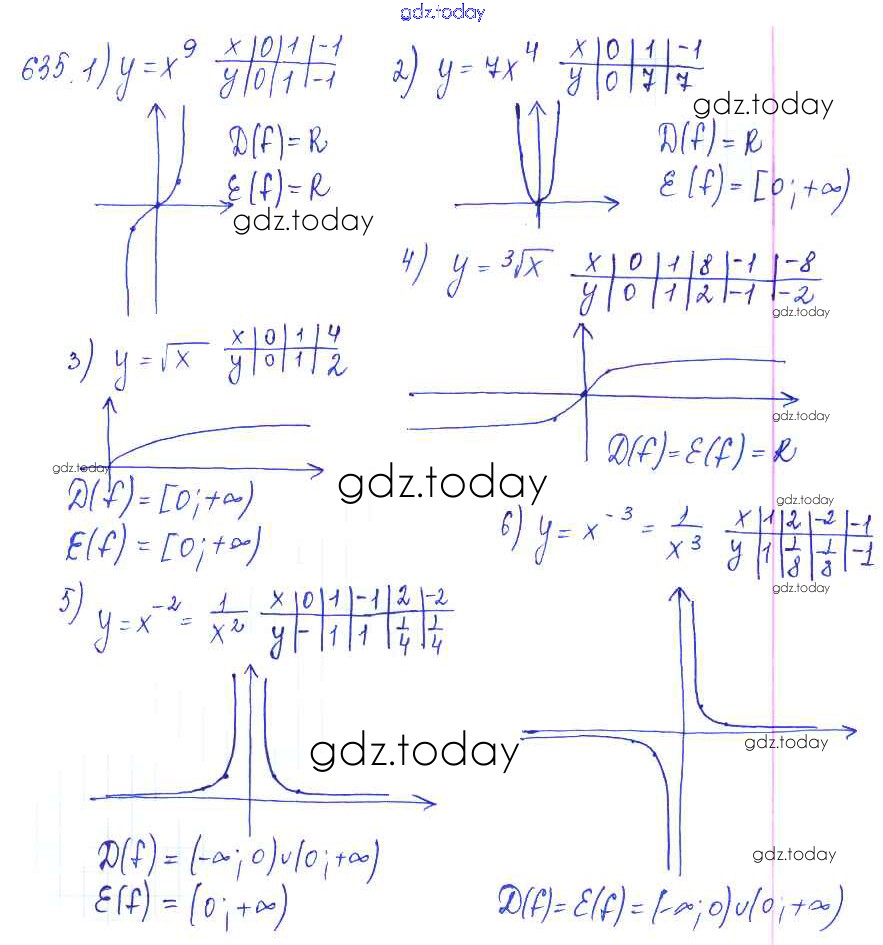 gdz.today
635. 1) y = x⁹
x | 0 | 1 | -1
y | 0 | 1 | -1
D(f) = R
E(f) = R
gdz.today
2) y = 7x⁴
x | 0 | 1 | -1
y | 0 | 7 | 7
gdz.today
D(f) = R
E(f) = [0; +∞)
3) y = √x
x | 0 | 1 | 4
y | 0 | 1 | 2
gdz.today
D(f) = [0; +∞)
E(f) = [0; +∞)
4) y = ³√x
x | 0 | 1 | 8 | -1 | -8
y | 0 | 1 | 2 | -1 | -2
gdz.today
gdz.today
D(f) = E(f) = R
gdz.today
5) y = x⁻² = 1/x²
x | 0 | 1 | -1 | 2 | -2
y | - | 1 | 1 | 1/4 | 1/4
gdz.today
D(f) = (-∞; 0) ∪ (0; +∞)
E(f) = (0; +∞)
gdz.today
6) y = x⁻³ = 1/x³
x | 1 | 2 | -2 | -1
y | 1 | 1/8 | 1/8 | -1
gdz.today
gdz.today
gdz.today
D(f) = E(f) = (-∞; 0) ∪ (0; +∞)